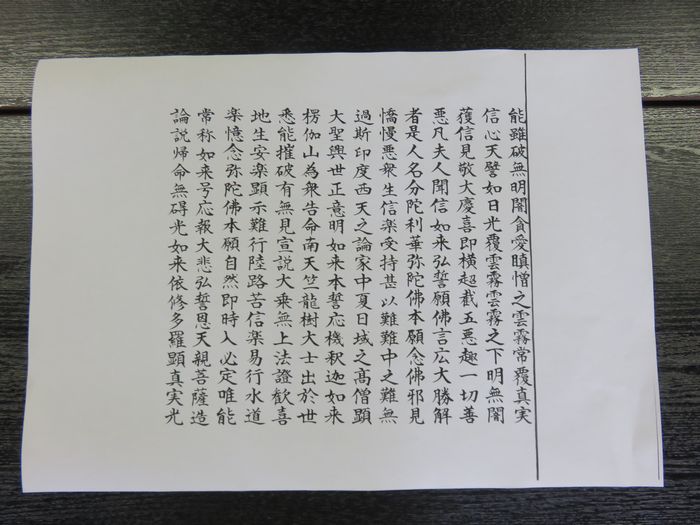 能雖破無明闇貪愛瞋憎之雲霧常覆真実
信心天譬如日光覆雲霧雲霧之下明無闇
獲信見敬大慶喜即横超截五悪趣一切善
悪凡夫人聞信如来弘誓願佛言広大勝解
者是人名分陀利華弥陀佛本願念佛邪見
憍慢悪衆生信楽受持甚以難難中之難無
過斯印度西天之論家中夏日域之高僧顕
大聖興世正意明如来本誓応機釈迦如来
楞伽山為衆告命南天竺龍樹大士出於世
悉能摧破有無見宣説大乗無上法證歓喜
地生安楽顕示難行陸路苦信楽易行水道
楽憶念弥陀佛本願自然即時入必定唯能
常称如来号応報大悲弘誓恩天親菩薩造
論説帰命無碍光如来依修多羅顕真実光